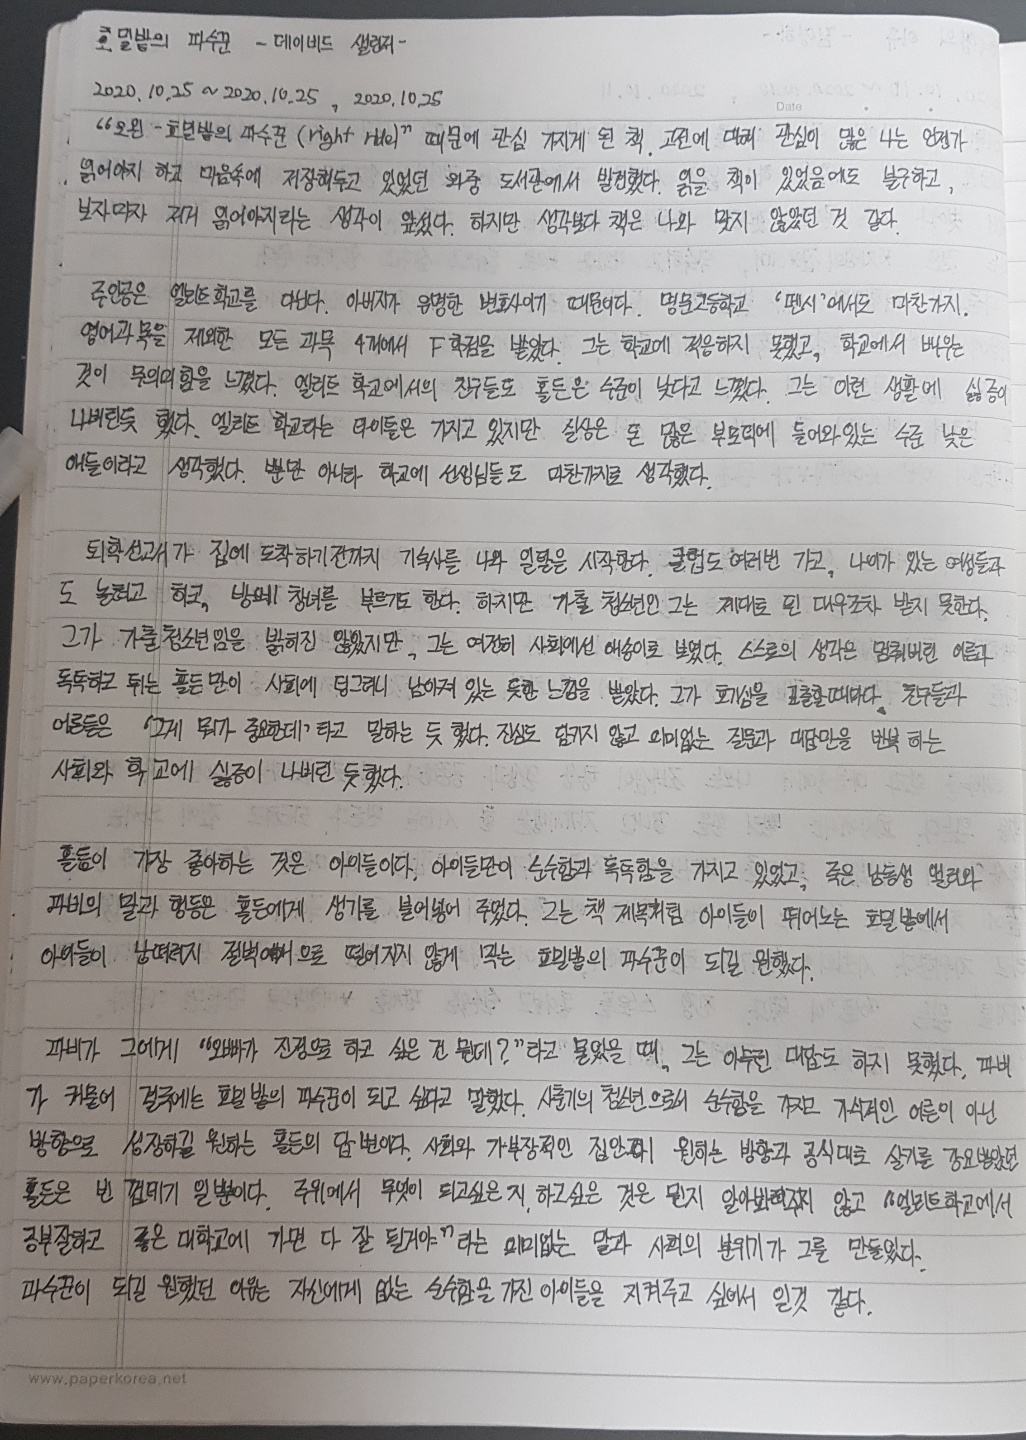 호밀밭의 파수꾼 - 데이비드 샐린저 -
2020.10.25 ~ 2020.10.25, 2020.10.25
Date
"오왼 - 호밀밭의 파수꾼 (right now)" 때문에 관심 가지게 된 책. 고전에 대해 관심이 많은 나는 언젠가
읽어야지 하고 마음속에 저장해두고 있었던 와중 도서관에서 발견했다. 읽을 책이 있었음에도 불구하고,
보자마자 저거 읽어야지라는 생각이 앞섰다. 하지만 생각보다 책은 나와 맞지 않았던 것 같다.
주인공은 엘리트학교를 다닌다. 아버지가 유명한 변호사이기 때문이다. 명문고등학교 '펜시'에서도 마찬가지.
영어과목을 제외한 모든 과목 4개에서 F학점을 받았다. 그는 학교에 적응하지 못했고, 학교에서 배우는
것이 무의미함을 느꼈다. 엘리트 학교에서의 친구들도 홀든은 수준이 낮다고 느꼈다. 그는 이런 생활에 싫증이
나버린듯 했다. 엘리트 학교라는 타이틀은 가지고 있지만 실상은 돈 많은 부모덕에 들어와있는 수준 낮은
애들이라고 생각했다. 뿐만 아니라 학교에 선생님들도 마찬가지로 생각했다.
퇴학선고서가 집에 도착하기전까지 기숙사를 나와 일탈을 시작한다. 클럽도 여러번 가고, 나이가 있는 여성들과
도 놀려고 하고, 방에 창녀를 부르기도 한다. 하지만 가출 청소년인 그는 제대로 된 대우조차 받지 못한다.
그가 가출청소년임을 밝히진 않았지만, 그는 여전히 사회에선 애송이로 보였다. 스스로의 생각은 멈춰버린 어른과
톡톡하고 튀는 홀든만이 사회에 덩그러니 남아져 있는 듯한 느낌을 받았다. 그가 호기심을 표출할때마다. 친구들과
어른들은 '그게 뭐가 중요한데' 라고 말하는 듯 했다. 진심도 담기지 않고 의미없는 질문과 대답만을 반복 하는
사회와 학교에 싫증이 나버린 듯했다.
홀든이 가장 좋아하는 것은 아이들이다. 아이들만이 순수함과 톡톡함을 가지고 있었고, 죽은 남동생 앨리와
피비의 말과 행동은 홀든에게 생기를 불어넣어 주었다. 그는 책 제목처럼 아이들이 뛰어노는 호밀밭에서
아이들이 낭떠러지 절벽으로 떨어지지 않게 막는 호밀밭의 파수꾼이 되길 원했다.
피비가 그에게 "오빠가 진정으로 하고 싶은 건 뭔데?"라고 물었을 때, 그는 아무런 대답도 하지 못했다. 피비
가 캐물어 결국에는 호밀밭의 파수꾼이 되고 싶다고 말했다. 사춘기의 청소년으로서 순수함을 가지고 가식적인 어른이 아닌
방향으로 성장하길 원하는 홀든의 답변이다. 사회와 가부장적인 집안이 원하는 방향과 공식대로 살기를 강요받았던
홀든은 빈 껍데기 일뿐이다. 주위에서 무엇이 되고싶은지, 하고싶은 것은 뭔지 알아봐주지 않고 "엘리트학교에서
공부잘하고 좋은 대학교에 가면 다 잘 될거야"라는 의미없는 말과 사회의 분위기가 그를 만들었다.
파수꾼이 되길 원했던 이유는 자신에게 없는 순수함을 가진 아이들을 지켜주고 싶어서 일것 같다.
www.paperkorea.net